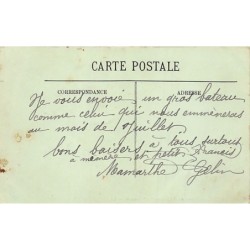 CARTE POSTALE
CORRESPONDANCE
ADRESSE
Je vous envoie un gros bateau
comme celui qui nous emmènera
au mois de Juillet
bons baisers à tous surtout
à mémère et petit Francis
Mamarthe Gelin